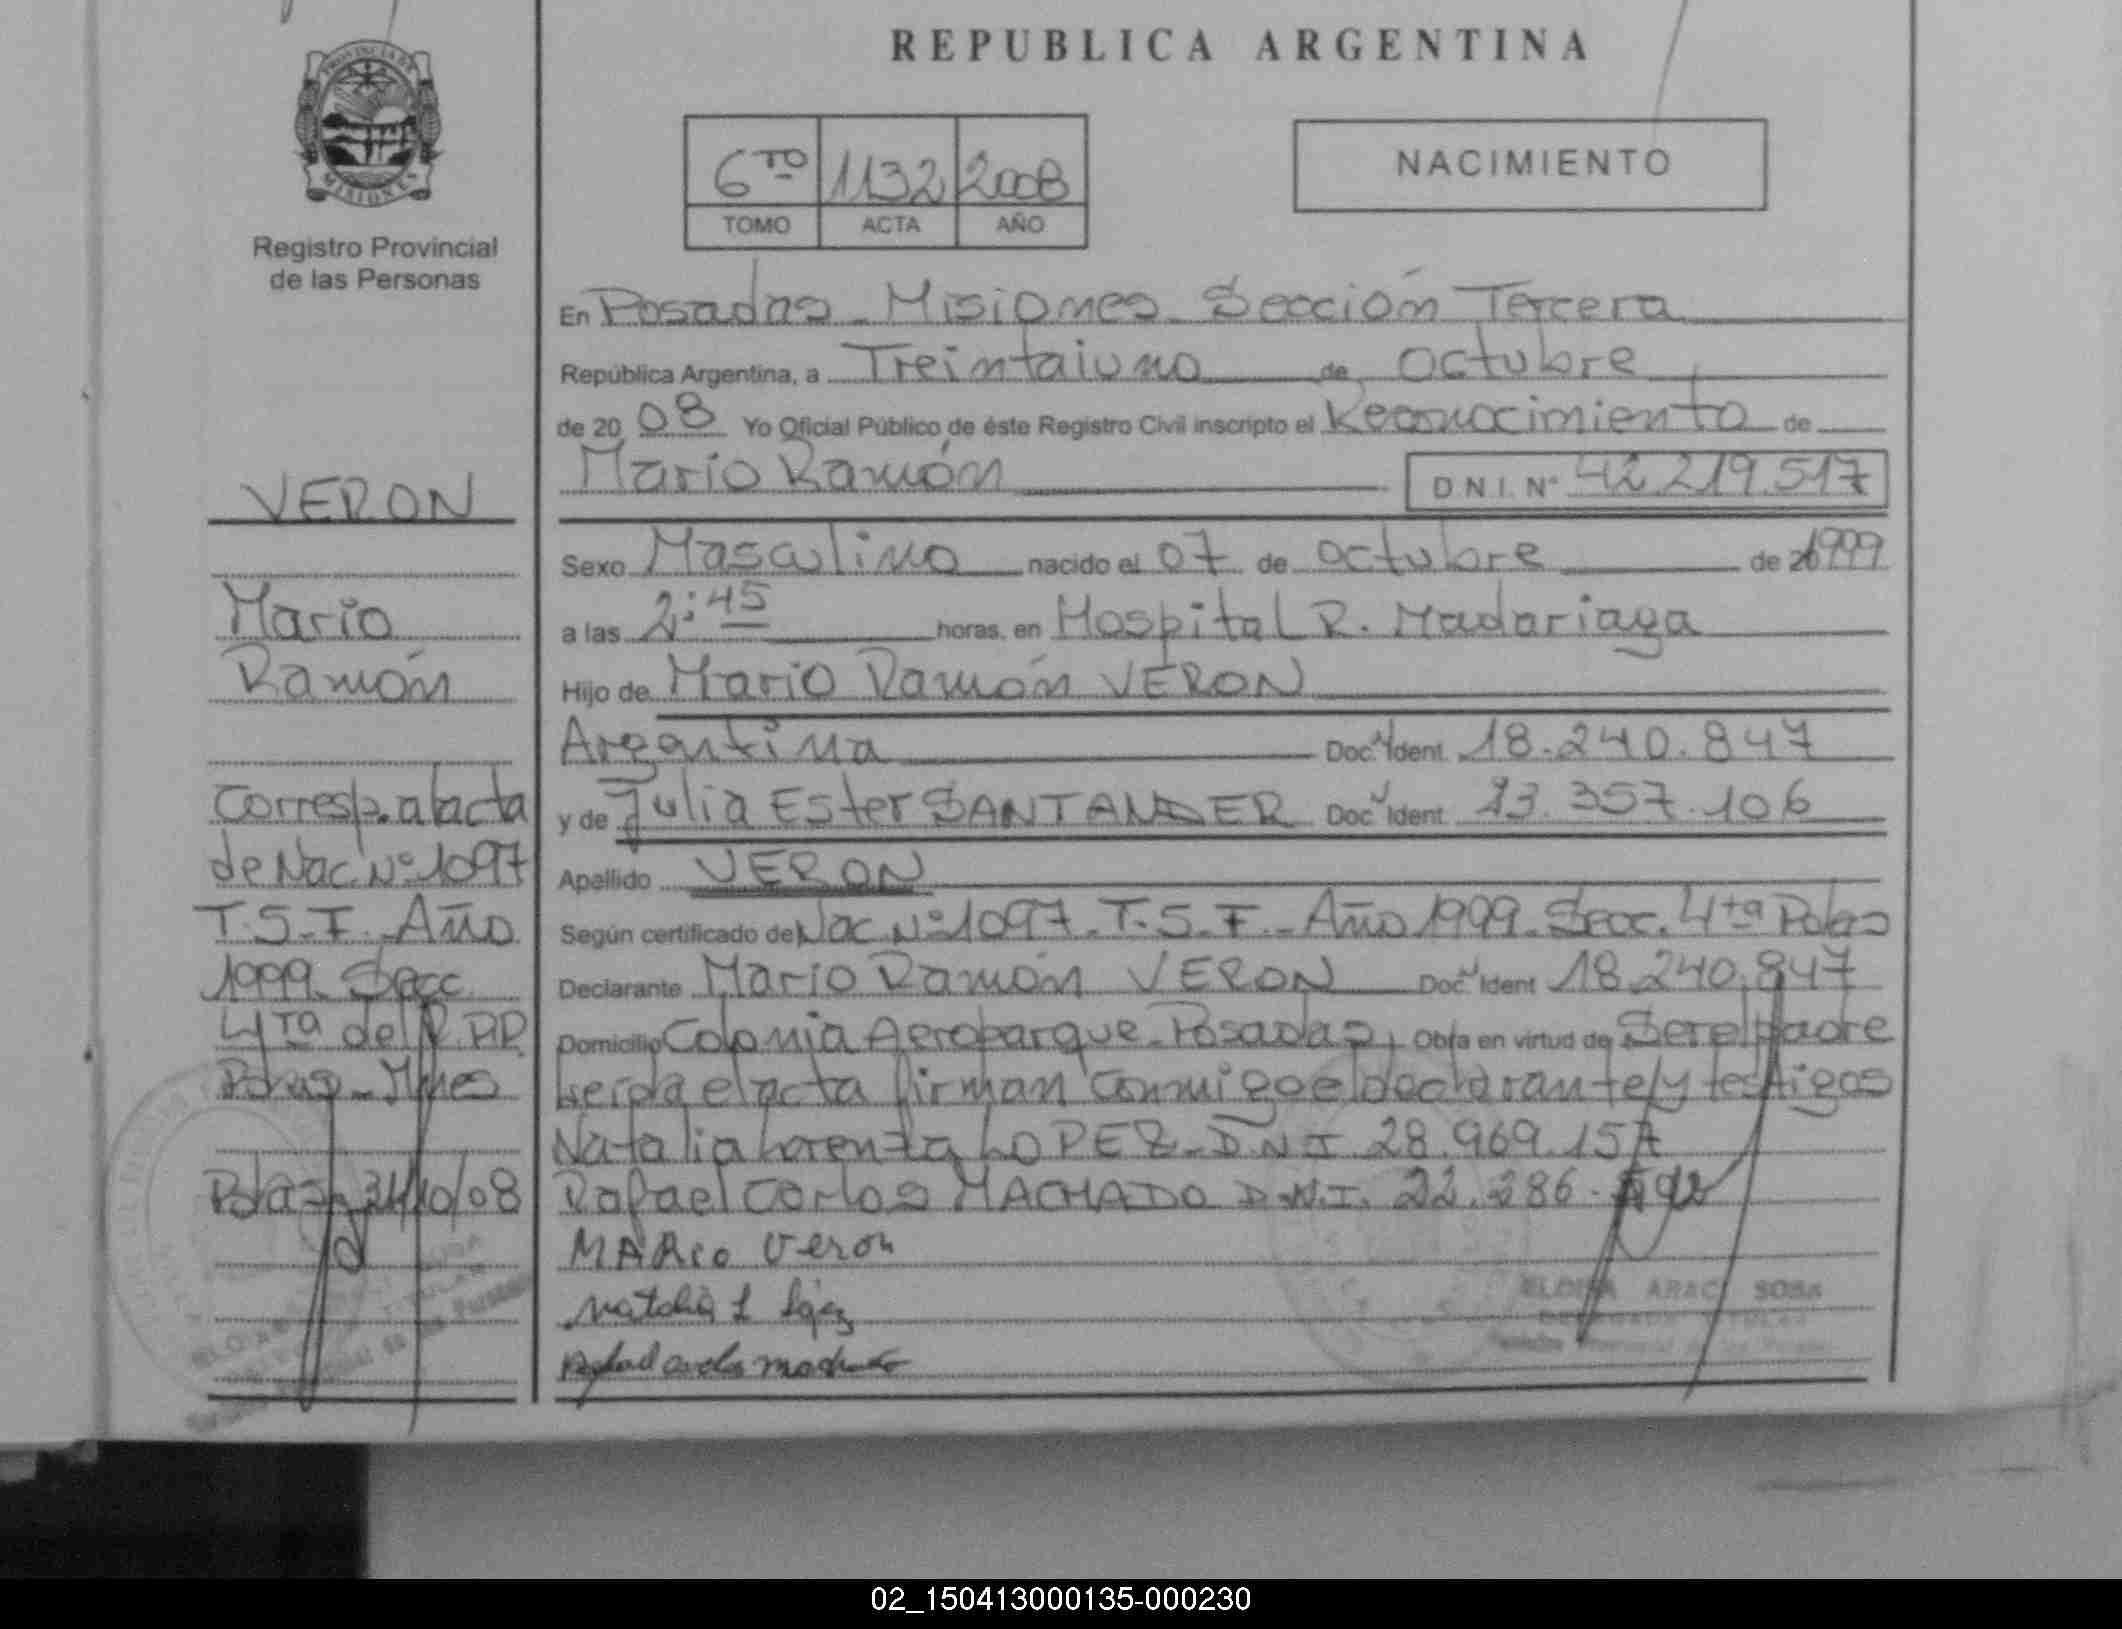 REPUBLICA ARGENTINA
PROVINCIA DE
MISIONES
Registro Provincial
de las Personas
6TO 1132 2008
TOMO ACTA AÑO
NACIMIENTO
VERON
Mario
Ramón
Corresp. al acta
de Nac. Nº 1097
T.S.F. Año
1999. Secc.
4ta del R.P.P.
Pdas - Mnes
Pdas, 31/10/08
En Posadas - Misiones - Sección Tercera
República Argentina, a Treintaiuno de octubre
de 2008 Yo Oficial Público de éste Registro Civil inscripto el Reconocimiento de
Mario Ramón D N I. Nº 42.219.517
Sexo Masculino nacido el 07 de octubre de 1999
a las 2:45 horas, en Hospital R. Madariaga
Hijo de Mario Ramón VERON
Argentina Doc. Ident. 18.240.847
y de Julia Ester SANTANDER Doc. Ident. 13.357.106
Apellido VERON
Según certificado de Nac. Nº 1097 - T.S.F. - Año 1999 - Secc. 4ta Pdas
Declarante Mario Ramón VERON Doc. Ident 18.240.847
Domicilio Colonia Aeroparque - Posadas, Obra en virtud de Ser el padre
Leída el acta firman conmigo el declarante y testigos
Natalia Lorenza LOPEZ - D.N.I. 28.969.157
Rafael Carlos MACHADO D.N.I. 22.286.
MARio Veron
Natalia L López
Rafael carlos machado
ELOISA ARACI SOSA
02_150413000135-000230